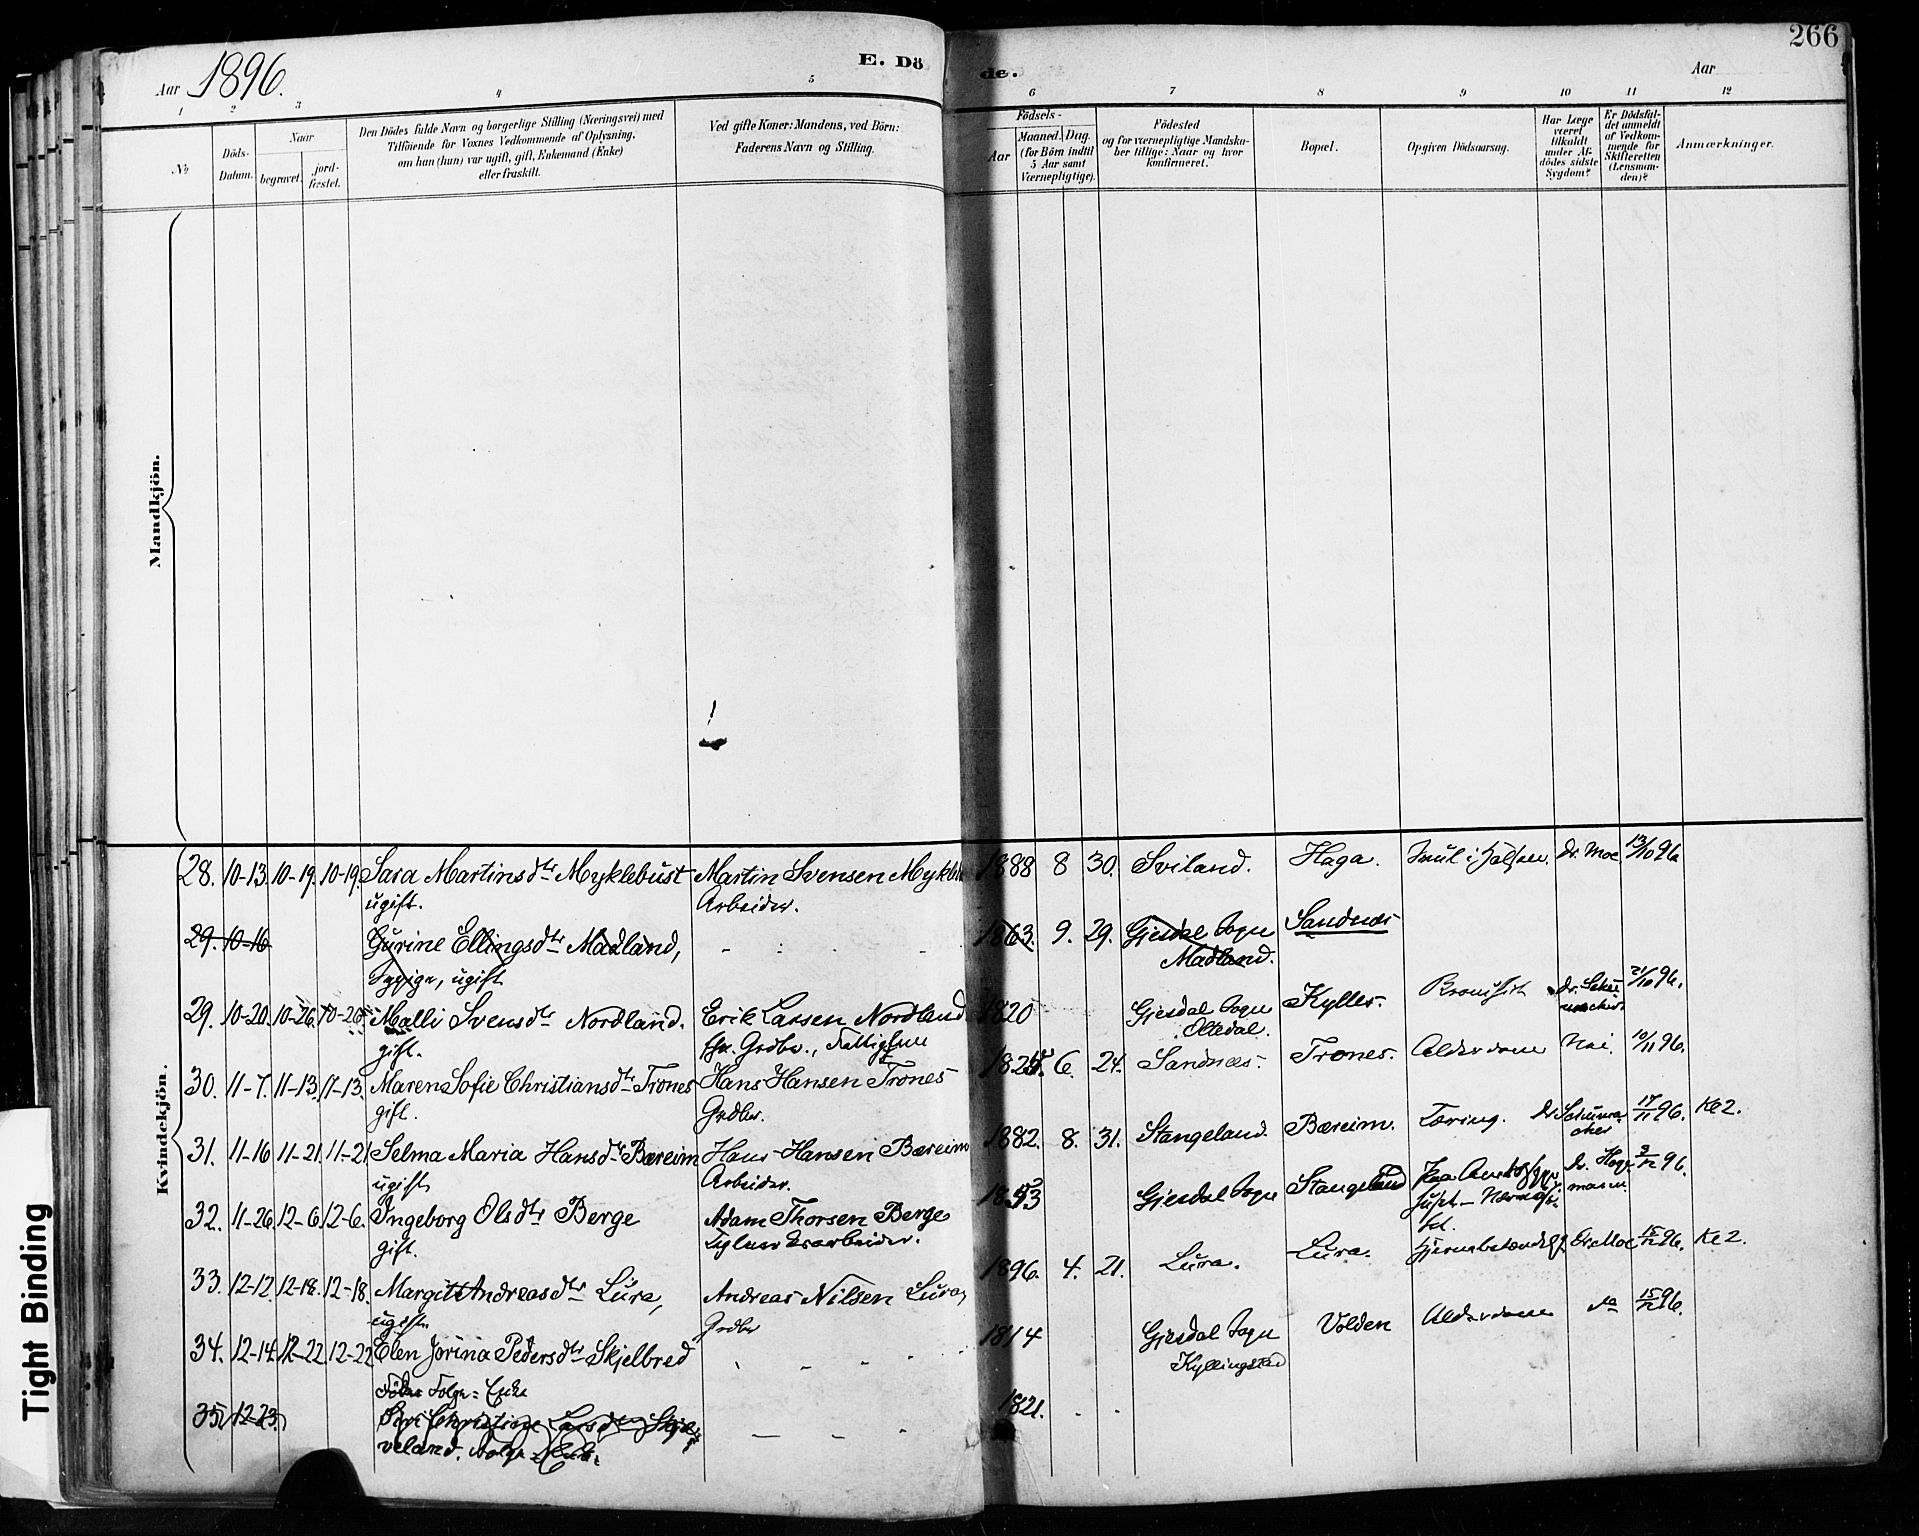 266
Aar 1896.
E. Dö
de.
Aar
1 2 3 4 5 6 7 8 9 10 11 12
№
Döds-
Datum.
Naar
begravet.
jord-
fæstet.
Den Dödes fulde Navn og borgerlige Stilling (Næringsvei) med
Tilföiende for Voxnes Vedkommende af Oplysning,
om han (hun) var ugift, gift, Enkemand (Enke)
eller fraskilt.
Ved gifte Koner: Mandens, ved Börn:
Faderens Navn og Stilling.
Födsels-
Aar
Maaned. Dag.
(for Börn indtil
5 Aar samt
Værnepligtige).
Födested
og for værnepligtige Mandska-
ber tillige: Naar og hvor
konfirmeret.
Bopæl.
Opgiven Dödsaarsag.
Har Læge
været
tilkaldt
under Af-
dödes sidste
Sygdom?
Er Dödsfal-
det anmeldt
af Vedkom-
mende for
Skifteretten
(Lensman-
den)?
Anmærkninger.
Mandkjön.
Kvindekjön.
28. 10-13. 10-19. 10-19. Sara Martinsdtr Myklebust Martin Svensen Mykleb 1888 8 30. Sviland. Haga. dr. Moe 13/10 96
ugift. Arbeider.
29. 10-16 Gurine Ellingsdtr Madland, 1863. 9. 29. Gjesdal Sogn Sandnes
ugift Madland.
29. 10-20. 10-26. 10-26. Malli Svensdtr Nordland. Erik Larsen Nordland 1820 Gjesdal Sogn Kylles. 21/10 96.
gift. Oltedal.
30. 11-7. 11-13. 11-13. Maren Sofie Christiansdtr Trones Hans Hansen Trones 6. 24. Sandnes. Trones. Alderdom Nei. 10/11 96.
gift. Grdbr.
31. 11-16 11-21. 11-21 Selma Maria Hansdtr Bæreim Hans Hansen Bæreim 1882. 8. 31. Stangeland. Bæreim. Tæring. Dr. Schuma- 17/11 96. Kl 2.
ugift Arbeider. cher
32. 11-26. 12-6. 12-6. Ingeborg Olsdtr Berge Adam Thorsen Berge Gjesdal Sogn Stangeland 3/12 96.
gift.
33. 12-12. 12-18. 12-18. Margit Andreasdtr Lura, Andreas Nilsen Lura, 1896. 4. 21. Lura. Lura. Dr. Moe 15/12 96. Kl 2.
ugift Grdbr
34. 12-14. 12-22. 12-22 Elen Jorina Pedersdtr Skjelbred 1814 Gjesdal Sogn Volden Alderdom 15/12 96.
Enke Kyllingstad
35 12-23. Christine Larsdtr 1821.
veland.
Tight Binding